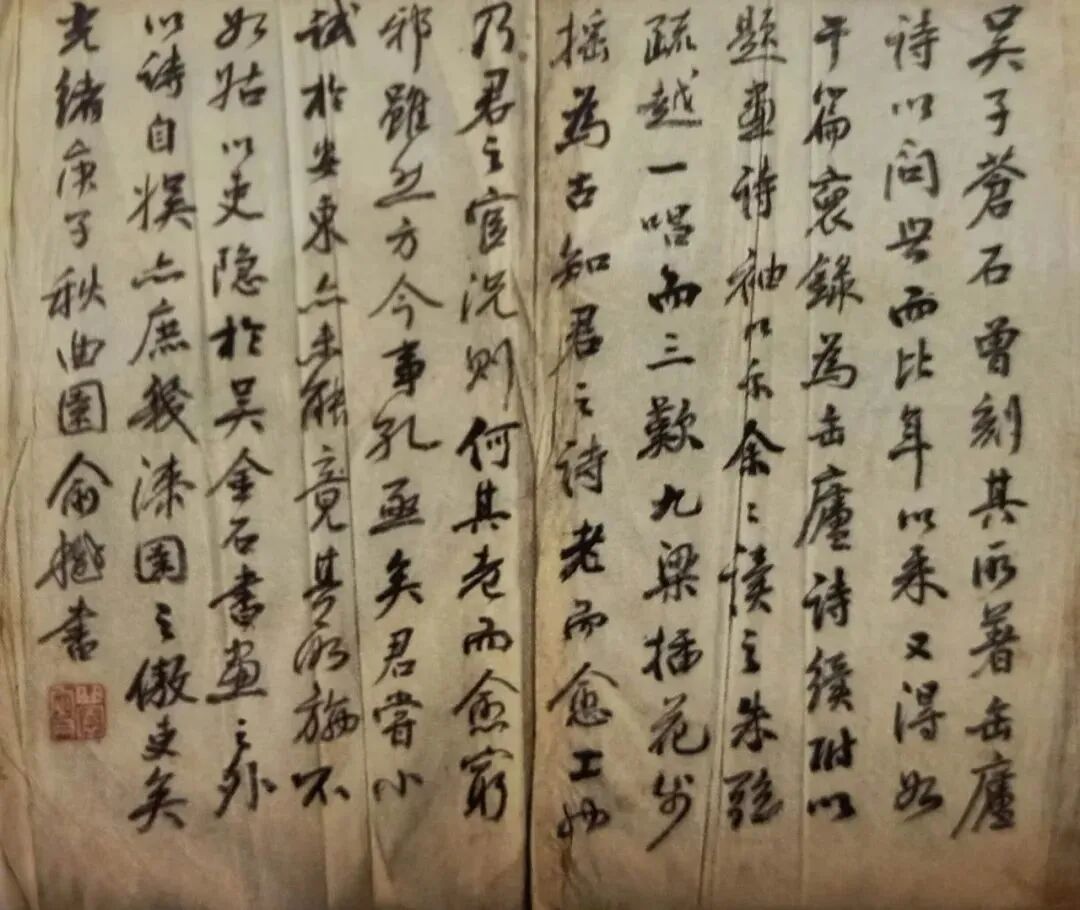 吳子蒼石曾刻其所著缶廬
詩以問世而比年以來又得如
干篇裒錄為缶廬詩續附以
題畫詩袖以示余〻讀之朱弦
疏越一唱而三歎九梁插花步
搖為古知君之詩老而愈工
乃君之官況則何其老而愈窮
邪雖然方今事孔亟矣君嘗小
試於安東亦未能竟其所施不
如姑以吏隱於吳金石書畫之外
以詩自娛亦庶幾漆園之傲吏矣
光緒庚子秋曲園俞樾書